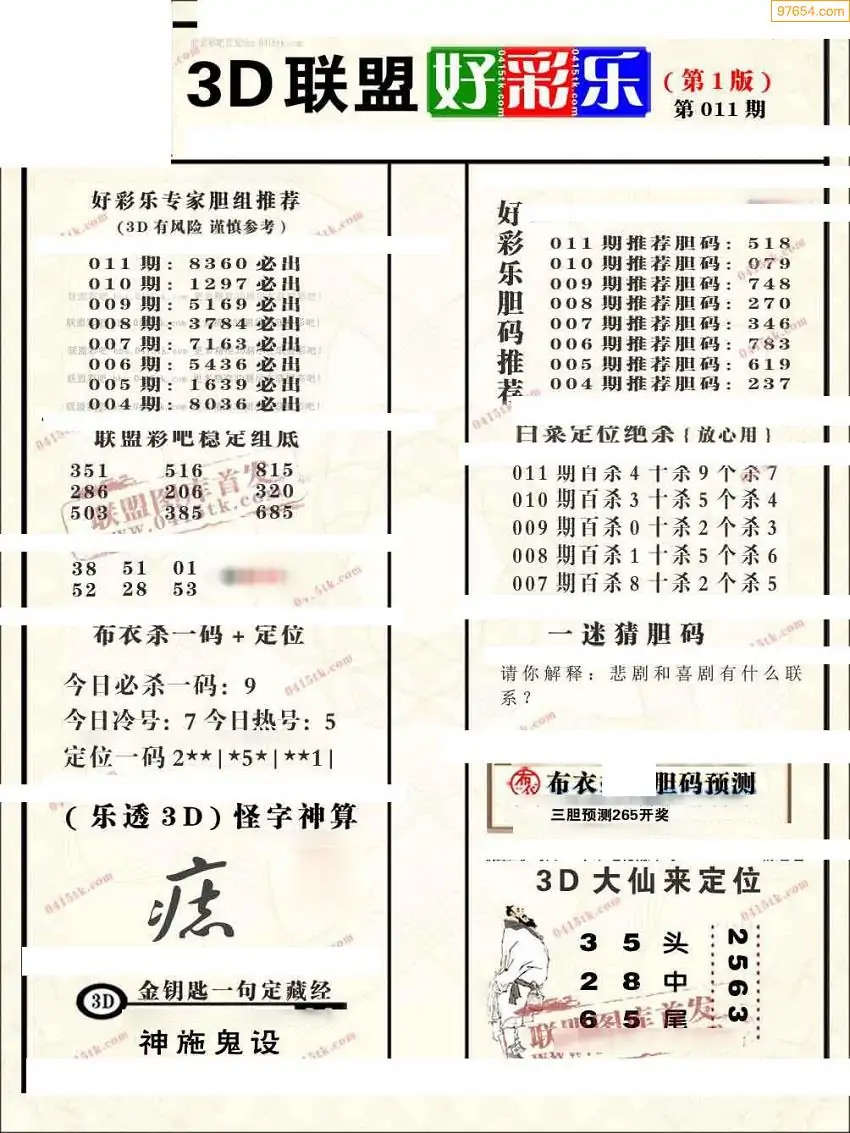 97654.com
3D联盟好彩乐
(第1版)
第011期
好彩乐专家胆组推荐
(3D有风险 谨慎参考)
011期: 8360必出
010期: 1297必出
009期: 5169必出
008期: 3784必出
007期: 7163必出
006期: 5436必出
005期: 1639必出
004期: 8036必出
联盟彩吧稳定组底
351 516 815
286 206 320
503 385 685
38 51 01
52 28 53
布衣杀一码+定位
今日必杀一码: 9
今日冷号: 7 今日热号: 5
定位一码 2**|*5*|**1|
(乐透3D)怪字神算
痣
3D 金钥匙一句定藏经
神施鬼设
好彩乐胆码推荐
011期推荐胆码: 518
010期推荐胆码: 079
009期推荐胆码: 748
008期推荐胆码: 270
007期推荐胆码: 346
006期推荐胆码: 783
005期推荐胆码: 619
004期推荐胆码: 237
白菜定位绝杀{放心用}
011期百杀4十杀9个杀7
010期百杀3十杀5个杀4
009期百杀0十杀2个杀3
008期百杀1十杀5个杀6
007期百杀8十杀2个杀5
一迷猜胆码
请你解释: 悲剧和喜剧有什么联
系?
布衣 胆码预测
三胆预测265开奖
3D大仙来定位
3 5 头
2 8 中
6 5 尾
2563
联盟图库首发
www.0415tk.com
0415tk.com